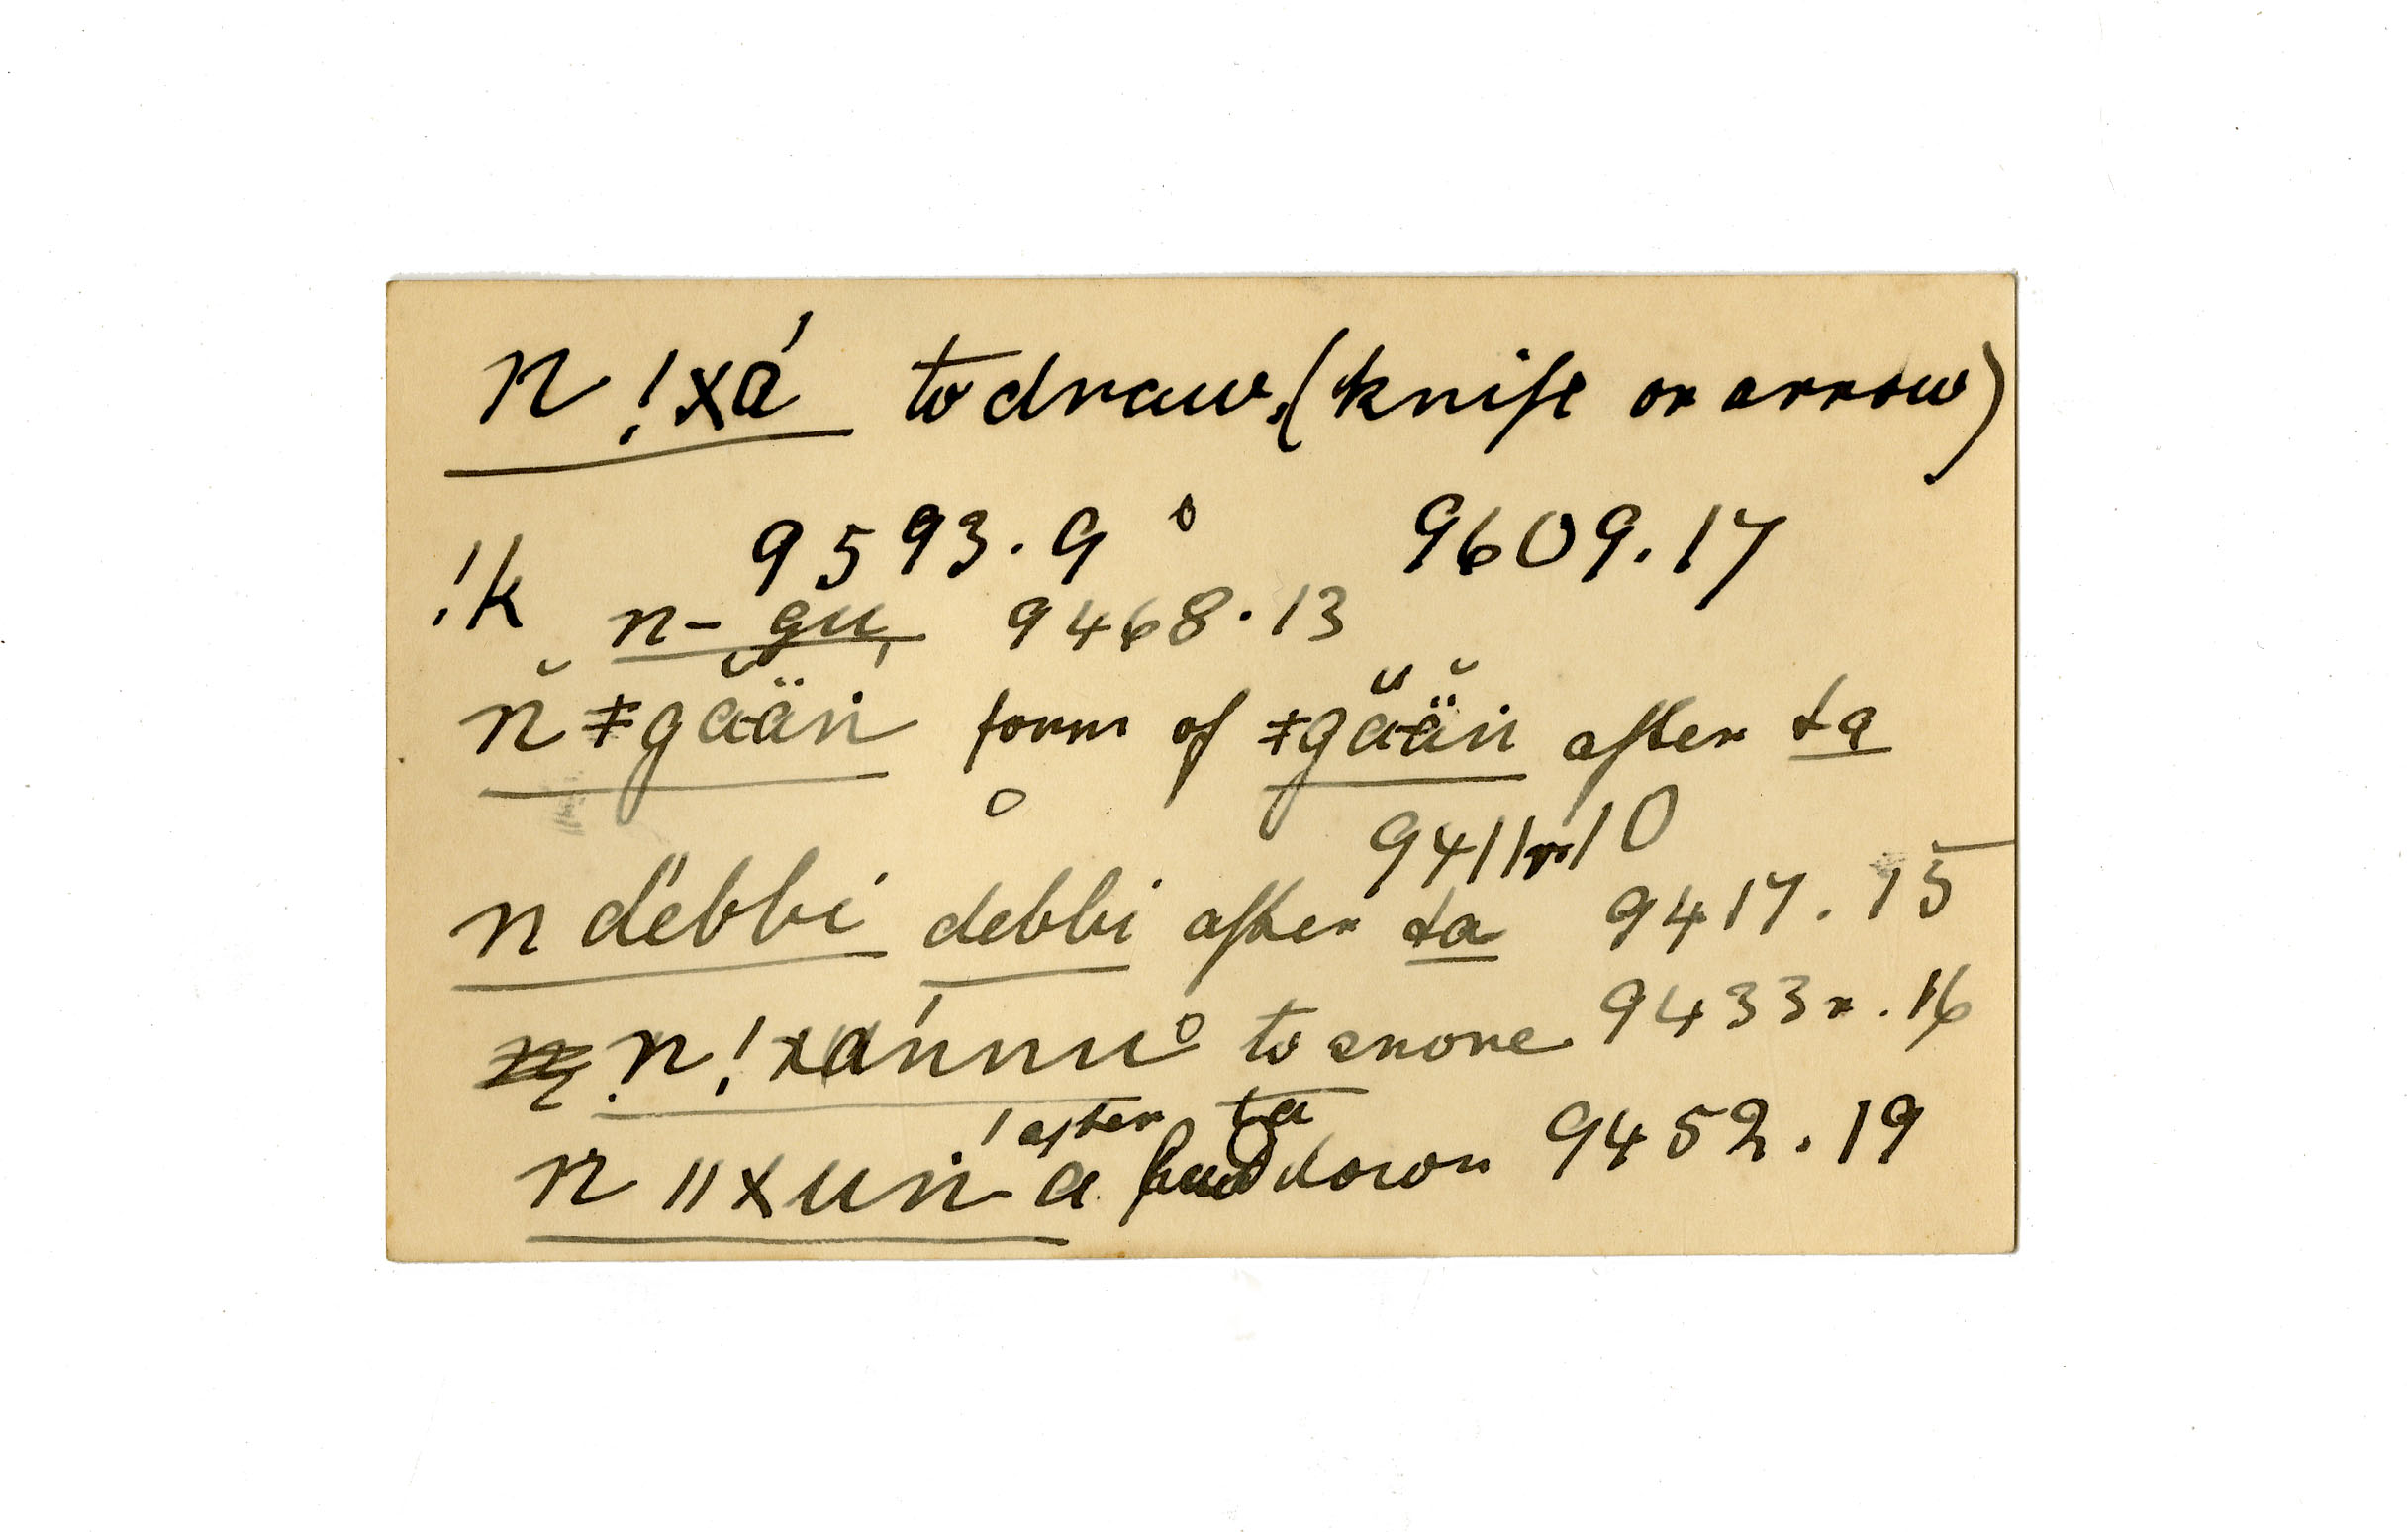 n !xá to draw. (knife or arrow)
9593.9 o 9609.17
!k n- gu, 9468.13
n̆ ǂgăä̆n form of ǂgăä̆n after ta
9411r.10
n dëbbi debbi after ta 9417.15
n !xánnu° to snore 9433r.16
after ta
n ǁxuń a down 9452.19